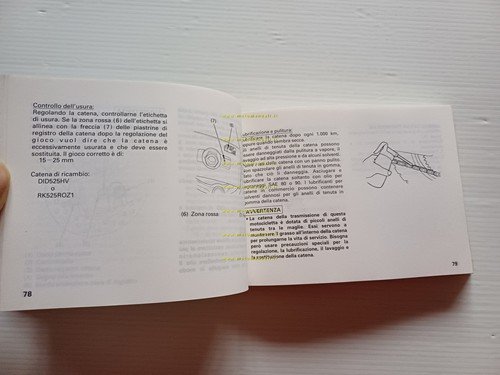 Controllo dell'usura:
Regolando la catena, controllarne l'etichetta
di usura. Se la zona rossa (6) dell'etichetta si
allinea con la freccia (7) delle piastrine di
registro della catena dopo la regolazione del
gioco vuol dire che la catena è
eccessivamente usurata e che deve essere
sostituita. Il gioco corretto è di:
15—25 mm
Catena di ricambio:
DID525HV
o
RK525ROZ1
78
(7)
(6) Zona rossa
Lubrificazione e pulitura:
Lubrificare la catena dopo ogni 1.000 km,
oppure quando sembra secca.
Gli anelli di tenuta della catena possono
essere danneggiati dalla pulitura a vapore, il
lavaggio ad alta pressione e da alcuni solventi.
con un panno pulito.
Non spazzolare gli anelli di tenuta in gomma
dato che ciò li danneggia. Asciugare e
lubrificare la catena soltanto con olio per
ingranaggi SAE 80 o 90. I lubrificanti per
catene in commercio possono contenere
solventi dannosi per gli anelli di tenuta in
gomma della catena.
AVVERTENZA
• La catena della trasmissione di questa
motocicletta è dotata di piccoli anelli di
tenuta tra le maglie. Essi servono a
mantenere il grasso all'interno della catena
per prolungarne la vita di servizio. Bisogna
però usare precauzioni speciali per la
regolazione, la lubrificazione, il lavaggio e
la sostituzione della catena.
79